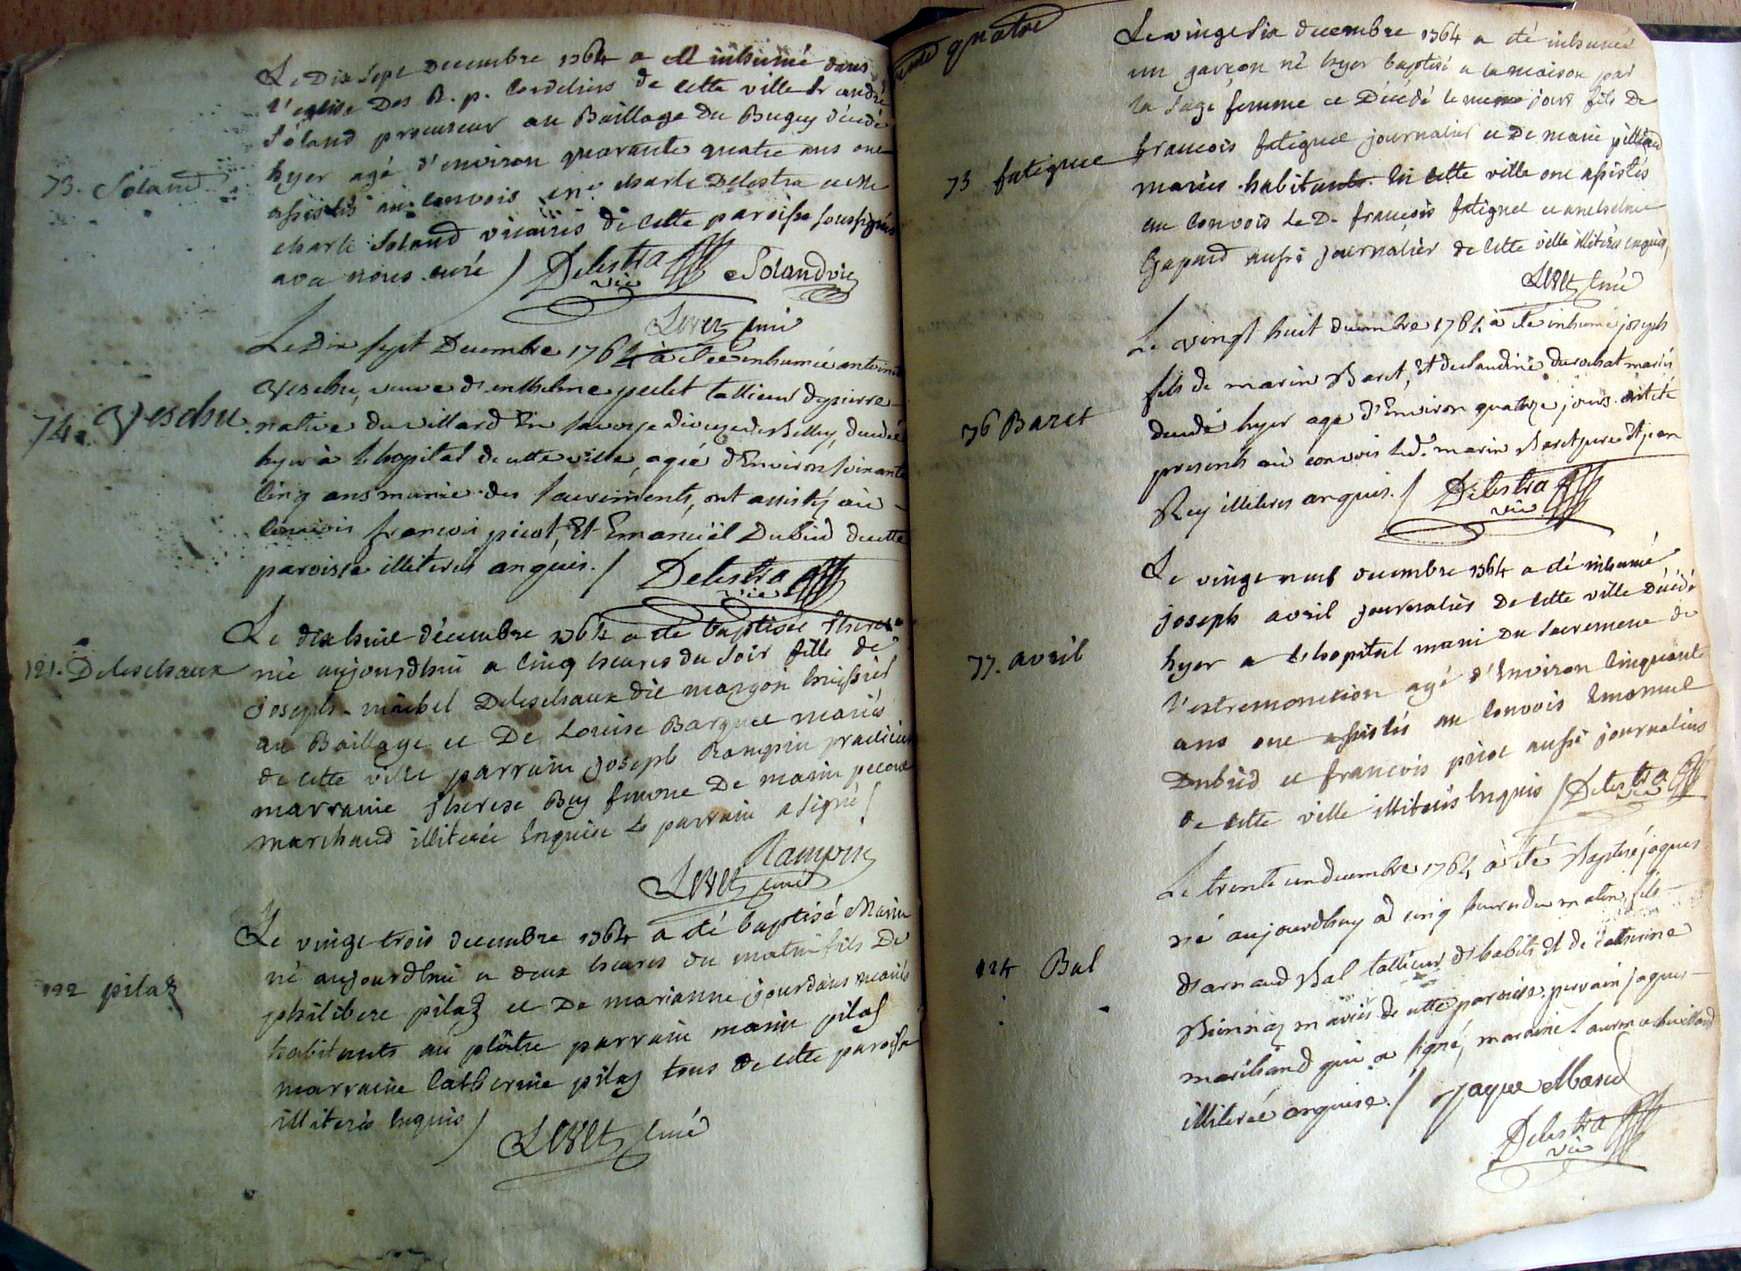 Le Dix Sept Decembre 1764 a été inhumé dans
l'eglise Des R. p. Cordeliers de cette ville Sr andré
Soland procureur au Baillage Du Bugey décédé
hyer agé d'environ quarante quatre ans ont
73. Soland
assistés au convois charle Delestra et
charle Soland vicaires de cette paroisse soussignés
avec nous curé / Delestra vic Soland vic
Levet curé
Le Dix sept Decembre 1764 à été inhumée antoine
Veschu, veuve d'anthelme tallieur de pierre
74. Veschu
native du villard En Savoye diocese de Belley, decedé
hyer à l'hopital de cette ville, agée d'Environ soixante
cinq ans munie des sacrements, ont assistés au
convois françois picot, Et Emanuël Dubied de cette
paroisse illiterés anquis. / Delestra vic
Le dix huit décembre 1764 a été baptisée therese
121. Deleschaux
née aujourdhui a cinq heures du soir fille de
joseph-michel Deleschaux dit mangon huissier
au Baillage et De Louise Barquet mariés
de cette ville parrain joseph Rampin praticien
marraine therese Bey femme De marin pecout
marchand illiterée Enquise le parrain a signé /
Rampin
Levet curé
Le vingt trois decembre 1764 a été baptisé Marin
né aujourdhui a deux heures du matin fils De
122 pilaz
philibert pilaz et De marianne jourdans mariés
habitants au plâtre parrain marin pilaz
marraine Catherine pilaz tous de cette paroisse
illiterés Enquis / Levet Curé
quatre
Le vingt six decembre 1764 a été inhumé
un garçon né hyer baptisé a la maison par
la sage femme et Décédé le meme jour fils De
francois fatiguet journalier et De marie
75 fatiguet
mariés habitants en cette ville ont assistés
au Convois le D. francois fatiguet et anthelme
Gapaud aussi journalier de cette ville illiterés enquis,
Levet Curé
Le vingt huit decembre 1764 à été inhumé joseph
fils de marin Baret, Et de claudine Durochat mariés
76 Baret
decedé hyer agé d'Environ quatorze jours. ont été
presents au convois led. marin Baret pere Et jean
Rey illiterés anquis. / Delestra vic
Le vingt neuf decembre 1764 a été inhumé
joseph avril journalier De cette ville Décédé
77. avril
hyer a l'hopital muni Du sacrement de
l'extremonction agé d'Environ Cinquante
ans ont assistés au Convois Emanuel
Dubied et francois picot aussi journaliers
de cette ville illiterés Enquis / Delestra vic
Le trente un decembre 1764 à été Baptisé jaques
né aujourdhuy à cinq heures du matin, fils
124 Bal
d'arnaud Bal tallieur d'habits Et de Catherine
mariés de cette paroisse. parrain jaques
marchand qui a signé, maraine Laurence
illiterée anquise. / Jaque
Delestra
vic